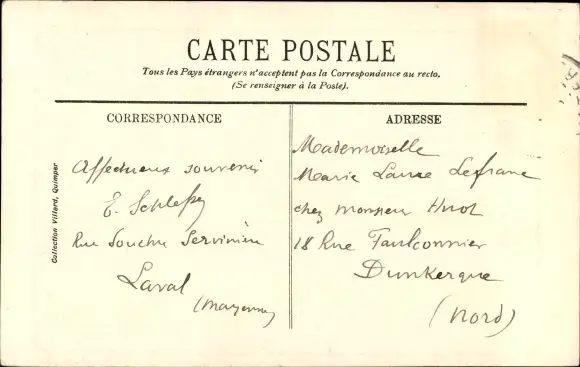 CARTE POSTALE
Tous les Pays étrangers n'acceptent pas la Correspondance au recto.
(Se renseigner à la Poste).
CORRESPONDANCE
Affectueux souvenir
E.
Rue Souchu Servinière
Laval
(Mayenne)
ADRESSE
Mademoiselle
Marie Laure Lefranc
chez Monsieur Huot
18 Rue Faulconnier
Dunkerque
(Nord)
Collection Villard, Quimper